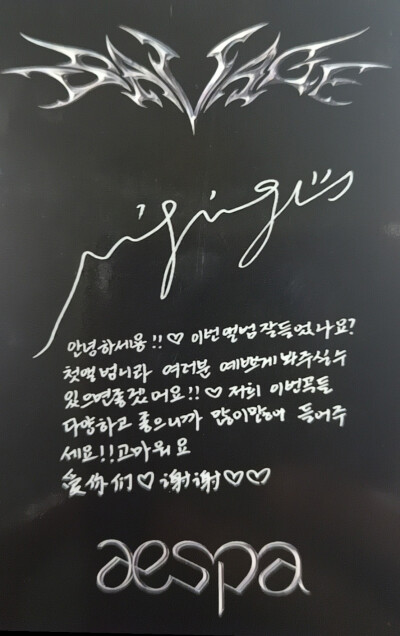 SAVAGE
ningning
안녕하세용!!♡ 이번앨범잘들었나요?
첫앨범니라 여러분 예쁘게봐주실수
있으면좋겠어요!!♡ 저희 이번곡들
다양하고 좋으니까 많이많이 들어주
세요!!고마워요
爱你们♡谢谢♡♡
aespa